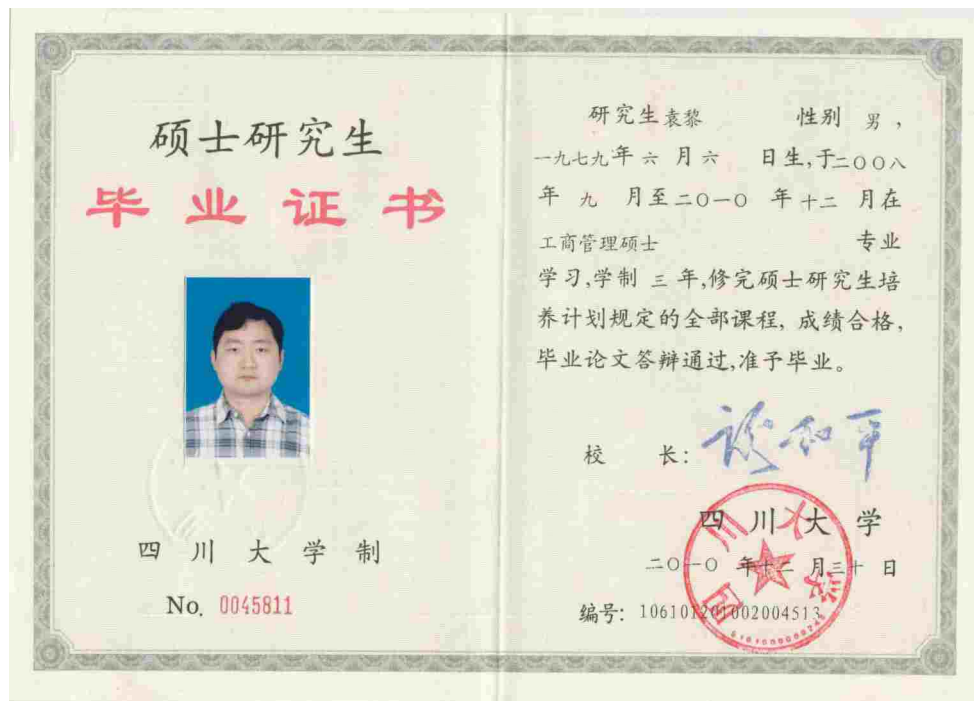 硕士研究生
毕业证书
四川大学制
No. 0045811
研究生袁黎 性别 男，
一九七九年 六 月 六 日生,于二〇〇八
年 九 月至二〇一〇 年 十二 月在
工商管理硕士 专业
学习,学制 三 年,修完硕士研究生培
养计划规定的全部课程, 成绩合格,
毕业论文答辩通过,准予毕业。
校 长: 谢和平
四川大学
二〇一〇 年十二 月三十 日
编号: 106101201002004513
四川大学